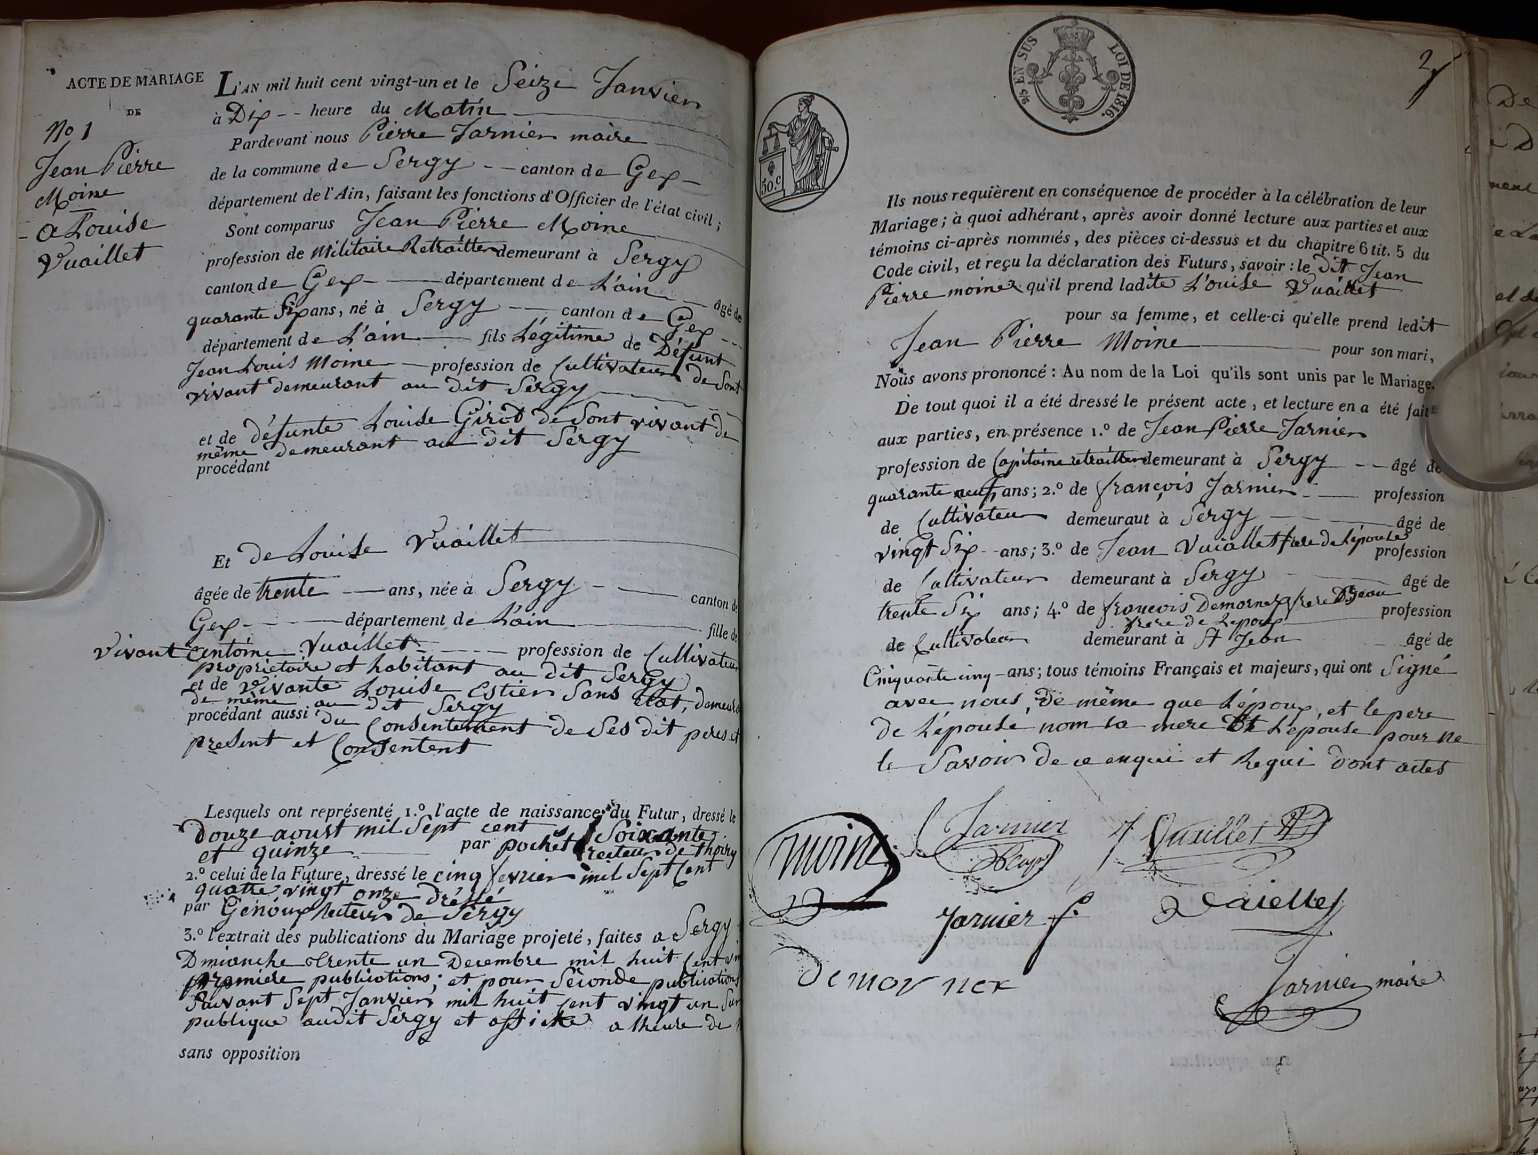 ACTE DE MARIAGE
DE
No 1
Jean Pierre
Moine
a Louise
Vuaillet
L'AN mil huit cent vingt-un et le Seize Janvier
à Dix -- heure du Matin
Pardevant nous Pierre Jarnier maire
de la commune de Sergy -- canton de Gex --
département de l'Ain, faisant les fonctions d'Officier de l'état civil;
Sont comparus Jean Pierre Moine
profession de Militaire Retraitter demeurant à Sergy
canton de Gex -- département de L'ain -- âgé de
quarante Six ans, né à Sergy -- canton de Gex --
département de L'ain -- fils Légitime de Défunt
Jean Louis Moine -- profession de Cultivateur de Sont
vivant demeurant au dit Sergy
et de défunte Louise Girod de Sont vivant de
même demeurant au dit Sergy
procédant
Et de Louise Vuaillet
âgée de trente -- ans, née à Sergy -- canton de
Gex -- département de L'ain -- fille de
vivant Antoine Vuaillet -- profession de Cultivateur
propriétaire et habitant au dit Sergy
et de vivante Louise Estier Sans état, demeura
de même au dit Sergy
procédant aussi du Consentement de Ses dit peres et
present et Consentent
Lesquels ont représenté 1.º l'acte de naissance du Futur, dressé le
Douze aoust mil Sept cent Soixante
et quinze -- par pochet recteur de thoiry
2.º celui de la Future, dressé le cinq fevrier mil Sept Cent
quatre vingt onze dréssé
par Genoux Recteur de Sergy
3.º l'extrait des publications du Mariage projeté, faites a Sergy
Dimanche trente un Decembre mil huit Cent vin
premiere publications; et pour Séconde publications
Suivant Sept Janvier mil huit cent vingt un Sur
publique audit Sergy et affiché a lheure de
sans opposition
5/5 EN SUS LOI DE 1816.
30.c
2
Ils nous requièrent en conséquence de procéder à la célébration de leur
Mariage; à quoi adhérant, après avoir donné lecture aux parties et aux
témoins ci-après nommés, des pièces ci-dessus et du chapitre 6 tit. 5 du
Code civil, et reçu la déclaration des Futurs, savoir: le dit Jean
Pierre moine qu'il prend ladite Louise Vuaillet
pour sa femme, et celle-ci qu'elle prend ledit
Jean Pierre Moine -- pour son mari,
Nous avons prononcé: Au nom de la Loi qu'ils sont unis par le Mariage.
De tout quoi il a été dressé le présent acte, et lecture en a été faite
aux parties, en présence 1.º de Jean Pierre Jarnier
profession de Capitaine retraitter demeurant à Sergy -- âgé de
quarante neuf ans; 2.º de françois Jarnier -- profession
de Cultivateur demeurant à Sergy -- âgé de
vingt Six -- ans; 3.º de Jean Vuiallet frere de Lépouse profession
de Cultivateur demeurant à Sergy -- âgé de
trente Six ans; 4.º de françois Demornex frere profession
frere de Lepoux
de Cultivateur demeurant à St Jean -- âgé de
Cinquante cinq -- ans; tous témoins Français et majeurs, qui ont Signé
avec nous, de même que Lépoux, et le pere
de Lépouse nom la mere et Lepouse pour ne
le Savoir de ce enquei et Requi dont actes
Moine
Jarnier
Cap
J Vuaillet
Jarnier f.
Vaiellet
Demornex
Jarnier maire